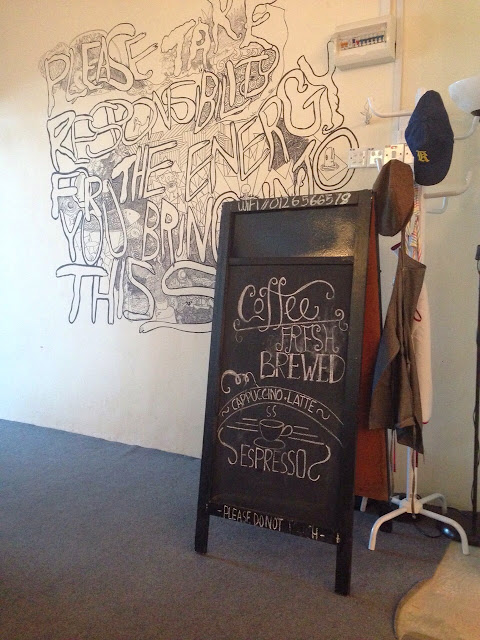 PLEASE TAKE
RESPONSIBILITY
FOR THE ENERGY
YOU BRING INTO
THIS
WIFI//0126566579
Coffee
FRESH
BREWED
~CAPPUCCINO•LATTE~
ESPRESSO
-PLEASE DO NOT